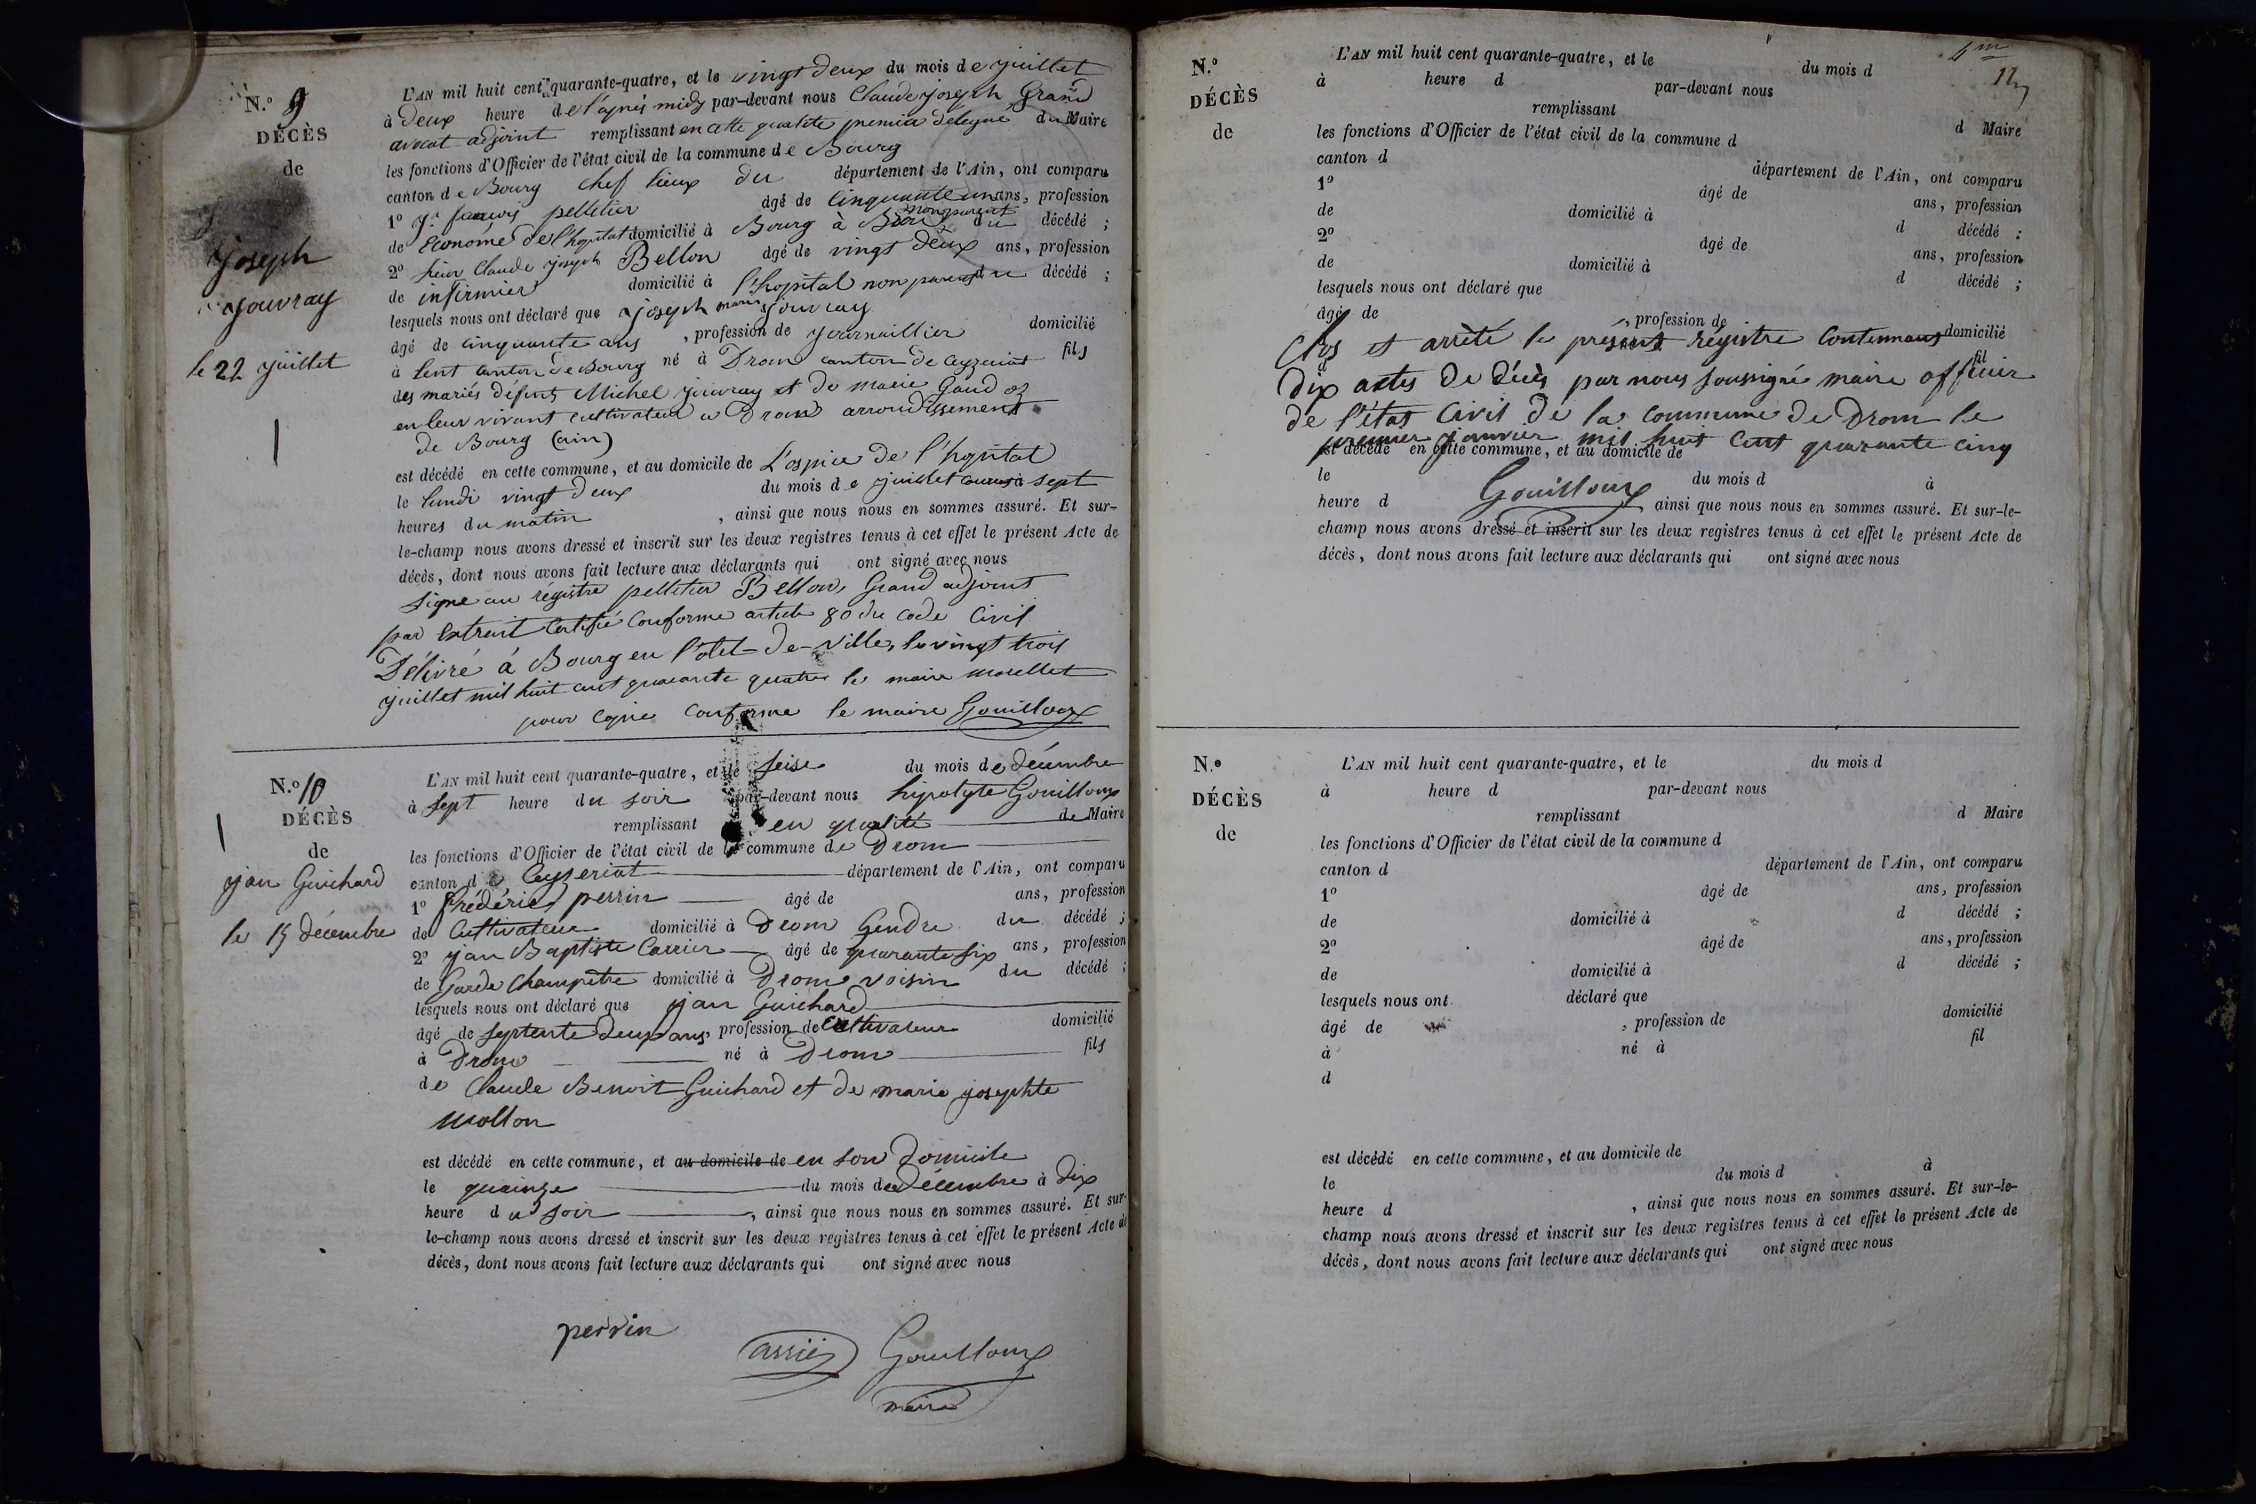 N.o 9
DÉCÈS
de
joseph
jouvray
le 22 juillet
L'AN mil huit cent quarante-quatre, et le vingt deux du mois de juillet
à deux heure de l'après midy par-devant nous Claude joseph Grand
avocat adjoint remplissant en cette qualité premier délégué du Maire
les fonctions d'Officier de l'état civil de la commune de Bourg
canton de Bourg chef lieux du département de l'Ain, ont comparu
1o pelletier âgé de cinquante un ans, profession
de Econome de l'hopital domicilié à Bourg à non parent du décédé ;
2o sieur Claude joseph Bellon âgé de vingt deux ans, profession
de infirmier domicilié à l'hopital non parent du décédé ;
lesquels nous ont déclaré que joseph marie jouvray
âgé de cinquante ans, profession de journaillier domicilié
à lent canton de Bourg né à Drom canton de Ceyzeriat fils
des mariés défunts Michel jouvray et de marie Gandoz
en leur vivant cultivateur a Drom arrondissement
de Bourg (ain)
est décédé en cette commune, et au domicile de L'ospice de l'hopital
le lundi vingt deux du mois de juillet courant à sept
heures du matin, ainsi que nous nous en sommes assuré. Et sur-
le-champ nous avons dressé et inscrit sur les deux registres tenus à cet effet le présent Acte de
décès, dont nous avons fait lecture aux déclarants qui ont signé avec nous
signe au régistre pelletier Bellon, Grand adjoint
par extrait certifié conforme article 80 du code civil
Délivré à Bourg en l'otel-de-ville, le vingt trois
juillet mil huit cent quarante quatre le maire morellet
pour copie conforme le maire Gouilloux
N.o 10
DÉCÈS
de
jan Guichard
le 15 décembre
L'AN mil huit cent quarante-quatre, et le seise du mois de décembre
à sept heure du soir par-devant nous hipolyte Gouilloux
remplissant en qualité de Maire
les fonctions d'Officier de l'état civil de la commune de Drom
canton de Ceyseriat département de l'Ain, ont comparu
1o frédéric perrin âgé de ans, profession
de Cultivateur domicilié à Drom Gendre du décédé ;
2o jan Baptiste Carrier âgé de quarante six ans, profession
de Garde Champêtre domicilié à Drom voisin du décédé ;
lesquels nous ont déclaré que jan Guichard
âgé de septente deux ans, profession de Cultivateur domicilié
à Drom né à Drom fils
de Claude Benoit Guichard et de marie josephte
Mollon
est décédé en cette commune, et au domicile de en son Domicile
le quainze du mois de Décembre à dix
heure du soir, ainsi que nous nous en sommes assuré. Et sur-
le-champ nous avons dressé et inscrit sur les deux registres tenus à cet effet le présent Acte de
décès, dont nous avons fait lecture aux déclarants qui ont signé avec nous
perrin
Gouilloux
maire
N.o
DÉCÈS
de
L'AN mil huit cent quarante-quatre, et le du mois d
à heure d par-devant nous
remplissant d Maire
les fonctions d'Officier de l'état civil de la commune d
canton d département de l'Ain, ont comparu
1o âgé de ans, profession
de domicilié à d décédé ;
2o âgé de ans, profession
de domicilié à d décédé ;
lesquels nous ont déclaré que
âgé de, profession de domicilié
Clos et arrêté le présent régistre contenant
fil
Dix actes de Décès par nous soussigné maire officier
de l'état Civil de la commune de Drom le
premier janvier mil huit cent quarante cinq
est décédé en cette commune, et au domicile de
le du mois d à
Gouilloux
heure d ainsi que nous nous en sommes assuré. Et sur-le-
champ nous avons dressé et inscrit sur les deux registres tenus à cet effet le présent Acte de
décès, dont nous avons fait lecture aux déclarants qui ont signé avec nous
N.o
DÉCÈS
de
L'AN mil huit cent quarante-quatre, et le du mois d
à heure d par-devant nous
remplissant d Maire
les fonctions d'Officier de l'état civil de la commune d
canton d département de l'Ain, ont comparu
1o âgé de ans, profession
de domicilié à d décédé ;
2o âgé de ans, profession
de domicilié à d décédé ;
lesquels nous ont déclaré que
âgé de, profession de domicilié
à né à fil
d
est décédé en cette commune, et au domicile de
le du mois d à
heure d, ainsi que nous nous en sommes assuré. Et sur-le-
champ nous avons dressé et inscrit sur les deux registres tenus à cet effet le présent Acte de
décès, dont nous avons fait lecture aux déclarants qui ont signé avec nous